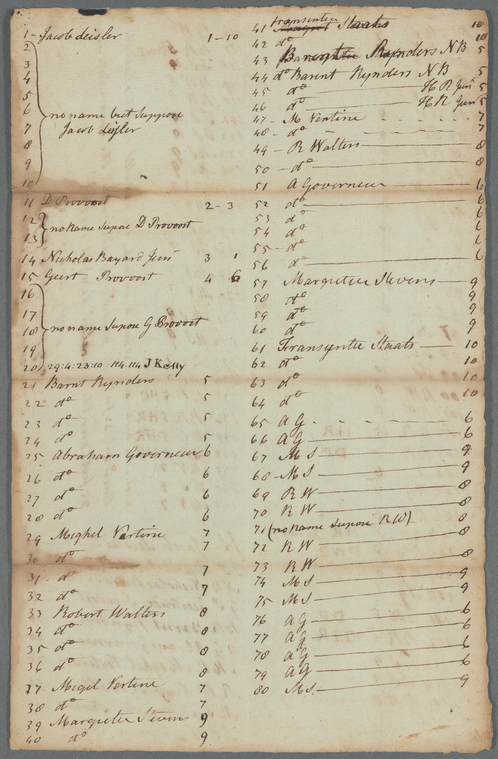 1 - Jacob Leisler 1 - 10
2
3
4
5
6 no name but suppose
7 Jacob Leisler
8
9
10
11 D Provoost 2 - 3
12 no name supose D Provoost
13
14 Nicholas Bayard Junr 3 1
15 Geert Provoost 4 6
16
17
18 no name Supose G Provost
19
20 29:4:23:10 114.114 J Kelly
21 Barnt Rynders 5
22 do 5
23 do 5
24 do 5
25 Abraham Governeur 6
26 do 6
27 do 6
28 do 6
29 Mighel Vertine 7
30 do 7
31 do 7
32 do 7
33 Robert Walters 8
34 do 8
35 do
36 do 8
37 Migel Vertine 7
38 do 7
39 Margrietie Stevens 9
40 do 9
41 transentie Staats 10
42 do 10
43 Barent Rynders N B 5
44 do Barent Rynders N B 5
45 do H R Junr 5
46 do H R Junr 5
47 - M Vertine 7
48 - do 7
49 - R Walters 8
50 - do 8
51 A Governeur 6
52 do 6
53 do 6
54 do 6
55 - do 6
56 do 6
57 Margretee Stevens 9
58 do 9
59 do 9
60 do 9
61 Transyntie Staats 10
62 do 10
63 do 10
64 do 10
65 A G 6
66 A G 6
67 M S 9
68 - M S 9
69 R W 8
70 R W 8
71 (no Name Supose R W) 8
72 R W 8
73 R W 8
74 M S 9
75 M S 9
76 A G 6
77 A G 6
78 A G 6
79 A G 6
80 M S 9